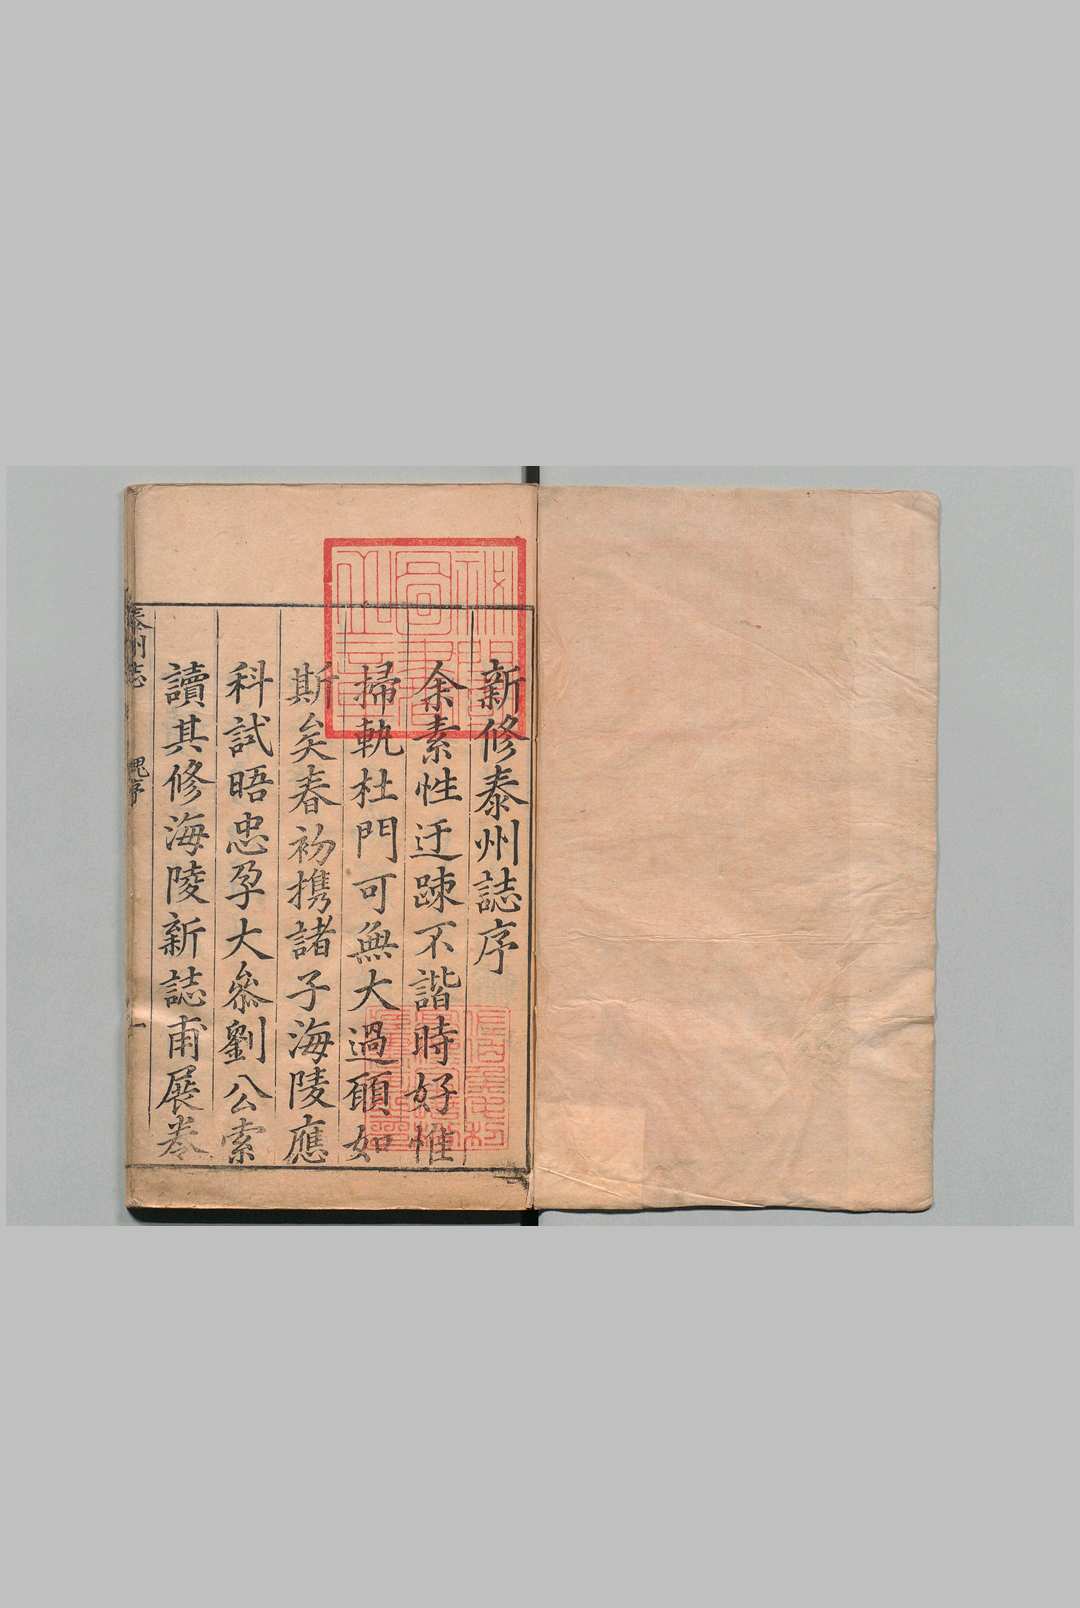 新修泰州誌序
余素性迂踈不諧時好惟
掃軌杜門可無大過頋如
斯矣春初携諸子海陵應
科試晤忠孕大叅劉公索
讀其修海陵新誌甫展卷
泰州誌 序 一
秘閣圖書之章